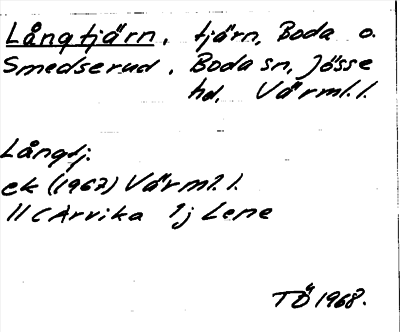 Långtjärn, tjärn, Boda o.
Smedserud, Boda sn, Jösse
hd, Värml. l.
Långtj.
ek (1967) Värml. l.
11 C Arvika 1j Lene
TÖ 1968.